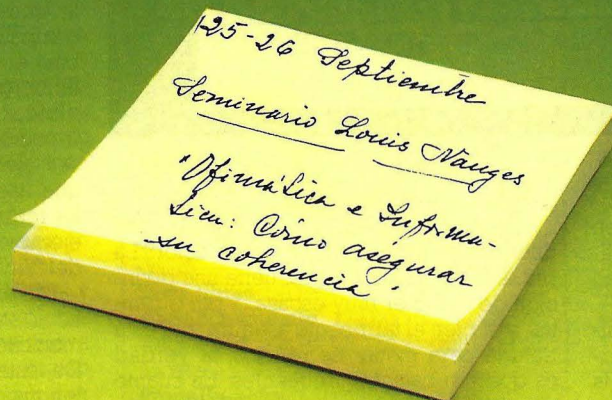 25-26 Septiembre
Seminario Louis Nauges
"Ofimática e Informá-
tica: Cómo asegurar
su coherencia".